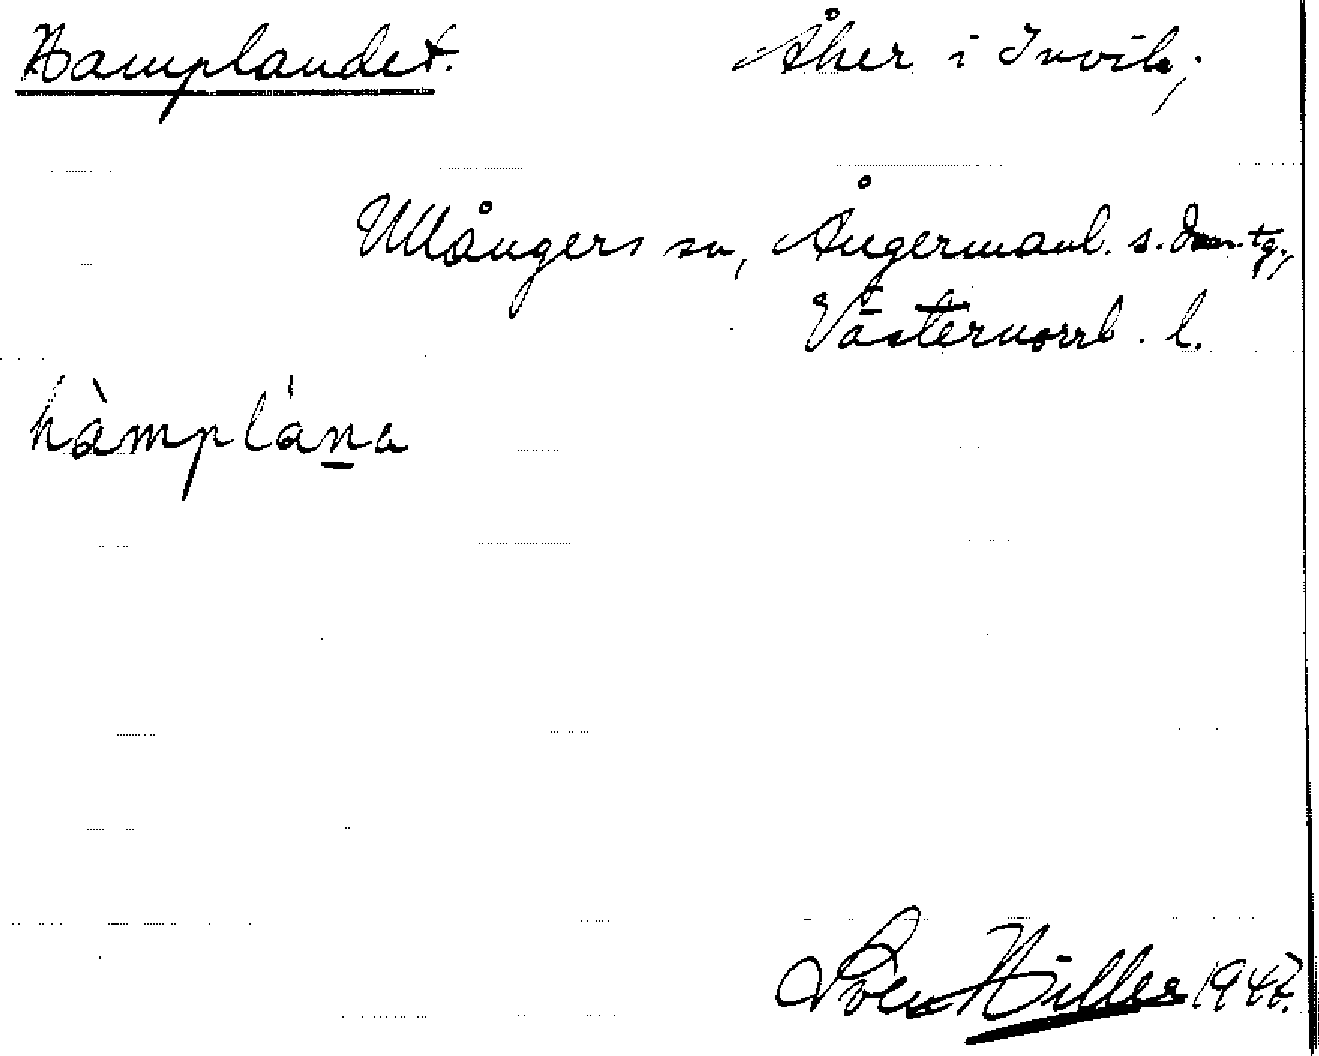 Hamplandet. Åker i Invik,
Ullångers sn, Ångermanl. s. dom. tg.,
Västernorrl. l.
hàmplána
Sven Hiller 1947.